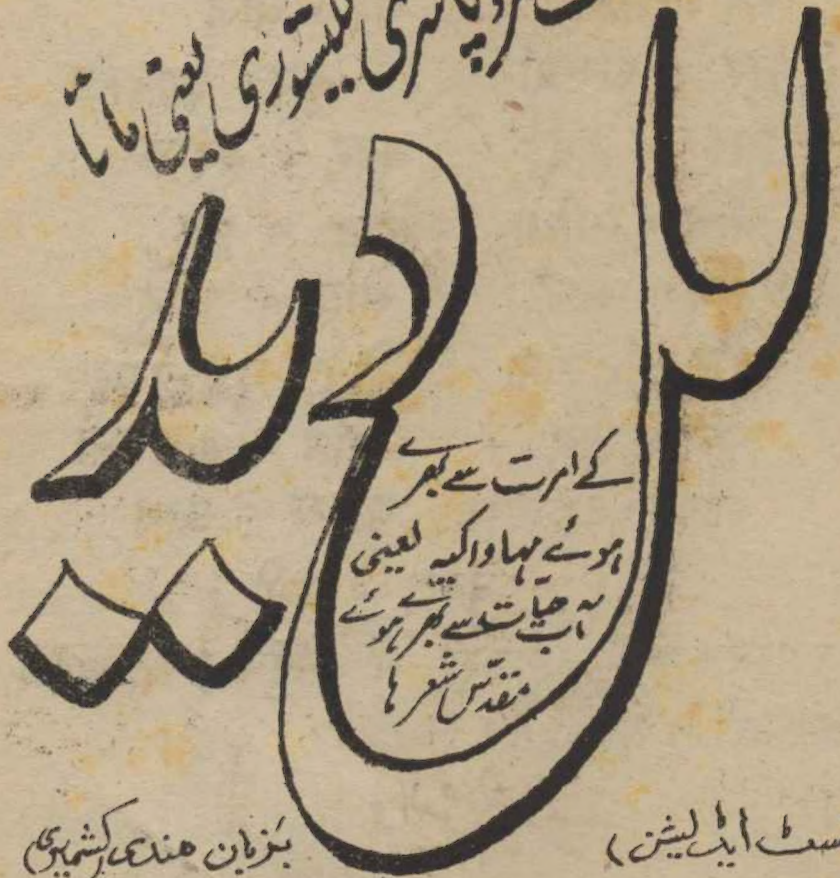 للیشوری یعنی ماتا
لل دید
کے امرت سے بھرے
ہوئے مہا واکیہ یعنی
آب حیات سے بھرے ہوئے
مقدس شعر ہا
بزبان ھندی کشمیری)
ایڈیشن)